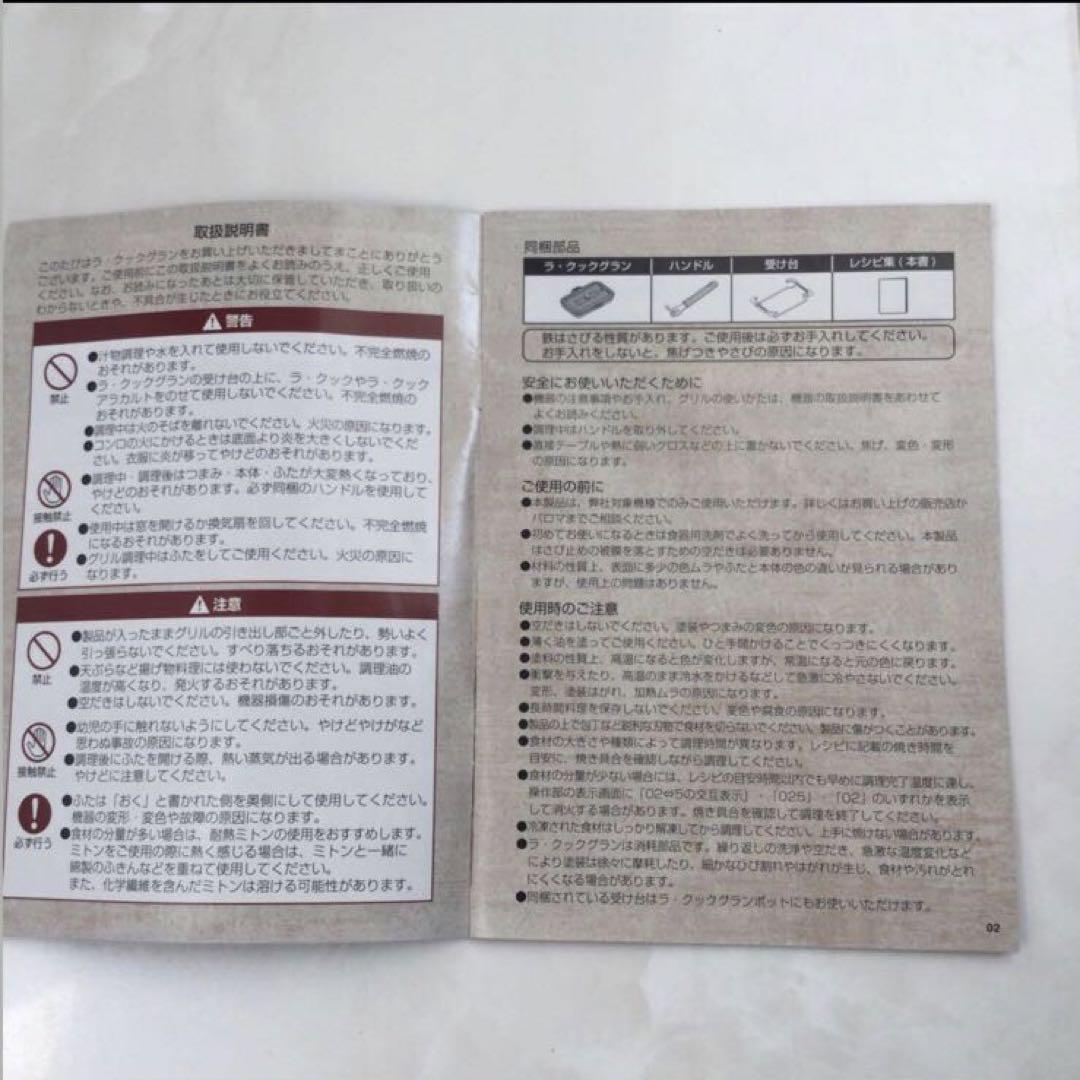 取扱説明書
このたびはラ・クックグランをお買い上げいただきましてまことにありがとう
ございます。ご使用前にこの取扱説明書をよくお読みのうえ、正しくご使用
ください。なお、お読みになったあとは大切に保管していただき、取り扱いの
わからないときや、不具合が生じたときにお役立てください。
警告
禁止
●汁物調理や水を入れて使用しないでください。不完全燃焼の
おそれがあります。
●ラ・クックグランの受け台の上に、ラ・クックやラ・クック
アラカルトをのせて使用しないでください。不完全燃焼の
おそれがあります。
●調理中は火のそばを離れないでください。火災の原因になります。
●コンロの火にかけるときは底面より炎を大きくしないでくだ
さい。衣服に炎が移ってやけどのおそれがあります。
接触禁止
●調理中・調理後はつまみ・本体・ふたが大変熱くなっており、
やけどのおそれがあります。必ず同梱のハンドルを使用して
ください。
必ず行う
●使用中は窓を開けるか換気扇を回してください。不完全燃焼
になるおそれがあります。
●グリル調理中はふたをしてご使用ください。火災の原因に
なります。
注意
禁止
●製品が入ったままグリルの引き出し部ごと外したり、勢いよく
引っ張らないでください。すべり落ちるおそれがあります。
●天ぷらなど揚げ物料理には使わないでください。調理油の
温度が高くなり、発火するおそれがあります。
●空だきはしないでください。機器損傷のおそれがあります。
接触禁止
●幼児の手に触れないようにしてください。やけどやけがなど
思わぬ事故の原因になります。
●調理後にふたを開ける際、熱い蒸気が出る場合があります。
やけどに注意してください。
必ず行う
●ふたは「おく」と書かれた側を奥側にして使用してください。
機器の変形・変色や故障の原因になります。
●食材の分量が多い場合は、耐熱ミトンの使用をおすすめします。
ミトンをご使用の際に熱く感じる場合は、ミトンと一緒に
綿製のふきんなどを重ねて使用してください。
また、化学繊維を含んだミトンは溶ける可能性があります。
同梱部品
ラ・クックグラン ハンドル 受け台 レシピ集(本書)
鉄はさびる性質があります。ご使用後は必ずお手入れしてください。
お手入れをしないと、焦げつきやさびの原因になります。
安全にお使いいただくために
●機器の注意事項やお手入れ、グリルの使いかたは、機器の取扱説明書をあわせて
よくお読みください。
●調理中はハンドルを取り外してください。
●直接テーブルや熱に弱いクロスなどの上に置かないでください。焦げ、変色・変形
の原因になります。
ご使用の前に
●本製品は、弊社対象機種でのみご使用いただけます。詳しくはお買い上げの販売店か
パロマまでご相談ください。
●初めてお使いになるときは食器用洗剤でよく洗ってから使用してください。本製品
はさび止めの被膜を落とすための空だきは必要ありません。
●材料の性質上、表面に多少の色ムラやふたと本体の色の違いが見られる場合があり
ますが、使用上の問題はありません。
使用時のご注意
●空だきはしないでください。塗装やつまみの変色の原因になります。
●薄く油を塗ってご使用ください。ひと手間かけることでくっつきにくくなります。
●塗料の性質上、高温になると色が変化しますが、常温になると元の色に戻ります。
●衝撃を与えたり、高温のまま冷水をかけるなどして急激に冷やさないでください。
変形、塗装はがれ、加熱ムラの原因になります。
●長時間料理を保存しないでください。変色や腐食の原因になります。
●製品の上で包丁など鋭利な刃物で食材を切らないでください。製品に傷がつくことがあります。
●食材の大きさや種類によって調理時間が異なります。レシピに記載の焼き時間を
目安に、焼き具合を確認しながら調理してください。
●食材の分量が少ない場合には、レシピの目安時間以内でも早めに調理完了温度に達し、
操作部の表示画面に「02⇔5の交互表示」・「025」・「02」のいずれかを表示
して消火する場合があります。焼き具合を確認して調理を終了してください。
●冷凍された食材はしっかり解凍してから調理してください。上手に焼けない場合があります。
●ラ・クックグランは消耗部品です。繰り返しの洗浄や空だき、急激な温度変化など
により塗装は徐々に摩耗したり、細かなひび割れやはがれが生じ、食材や汚れがとれ
にくくなる場合があります。
●同梱されている受け台はラ・クックグランポットにもお使いいただけます。
02